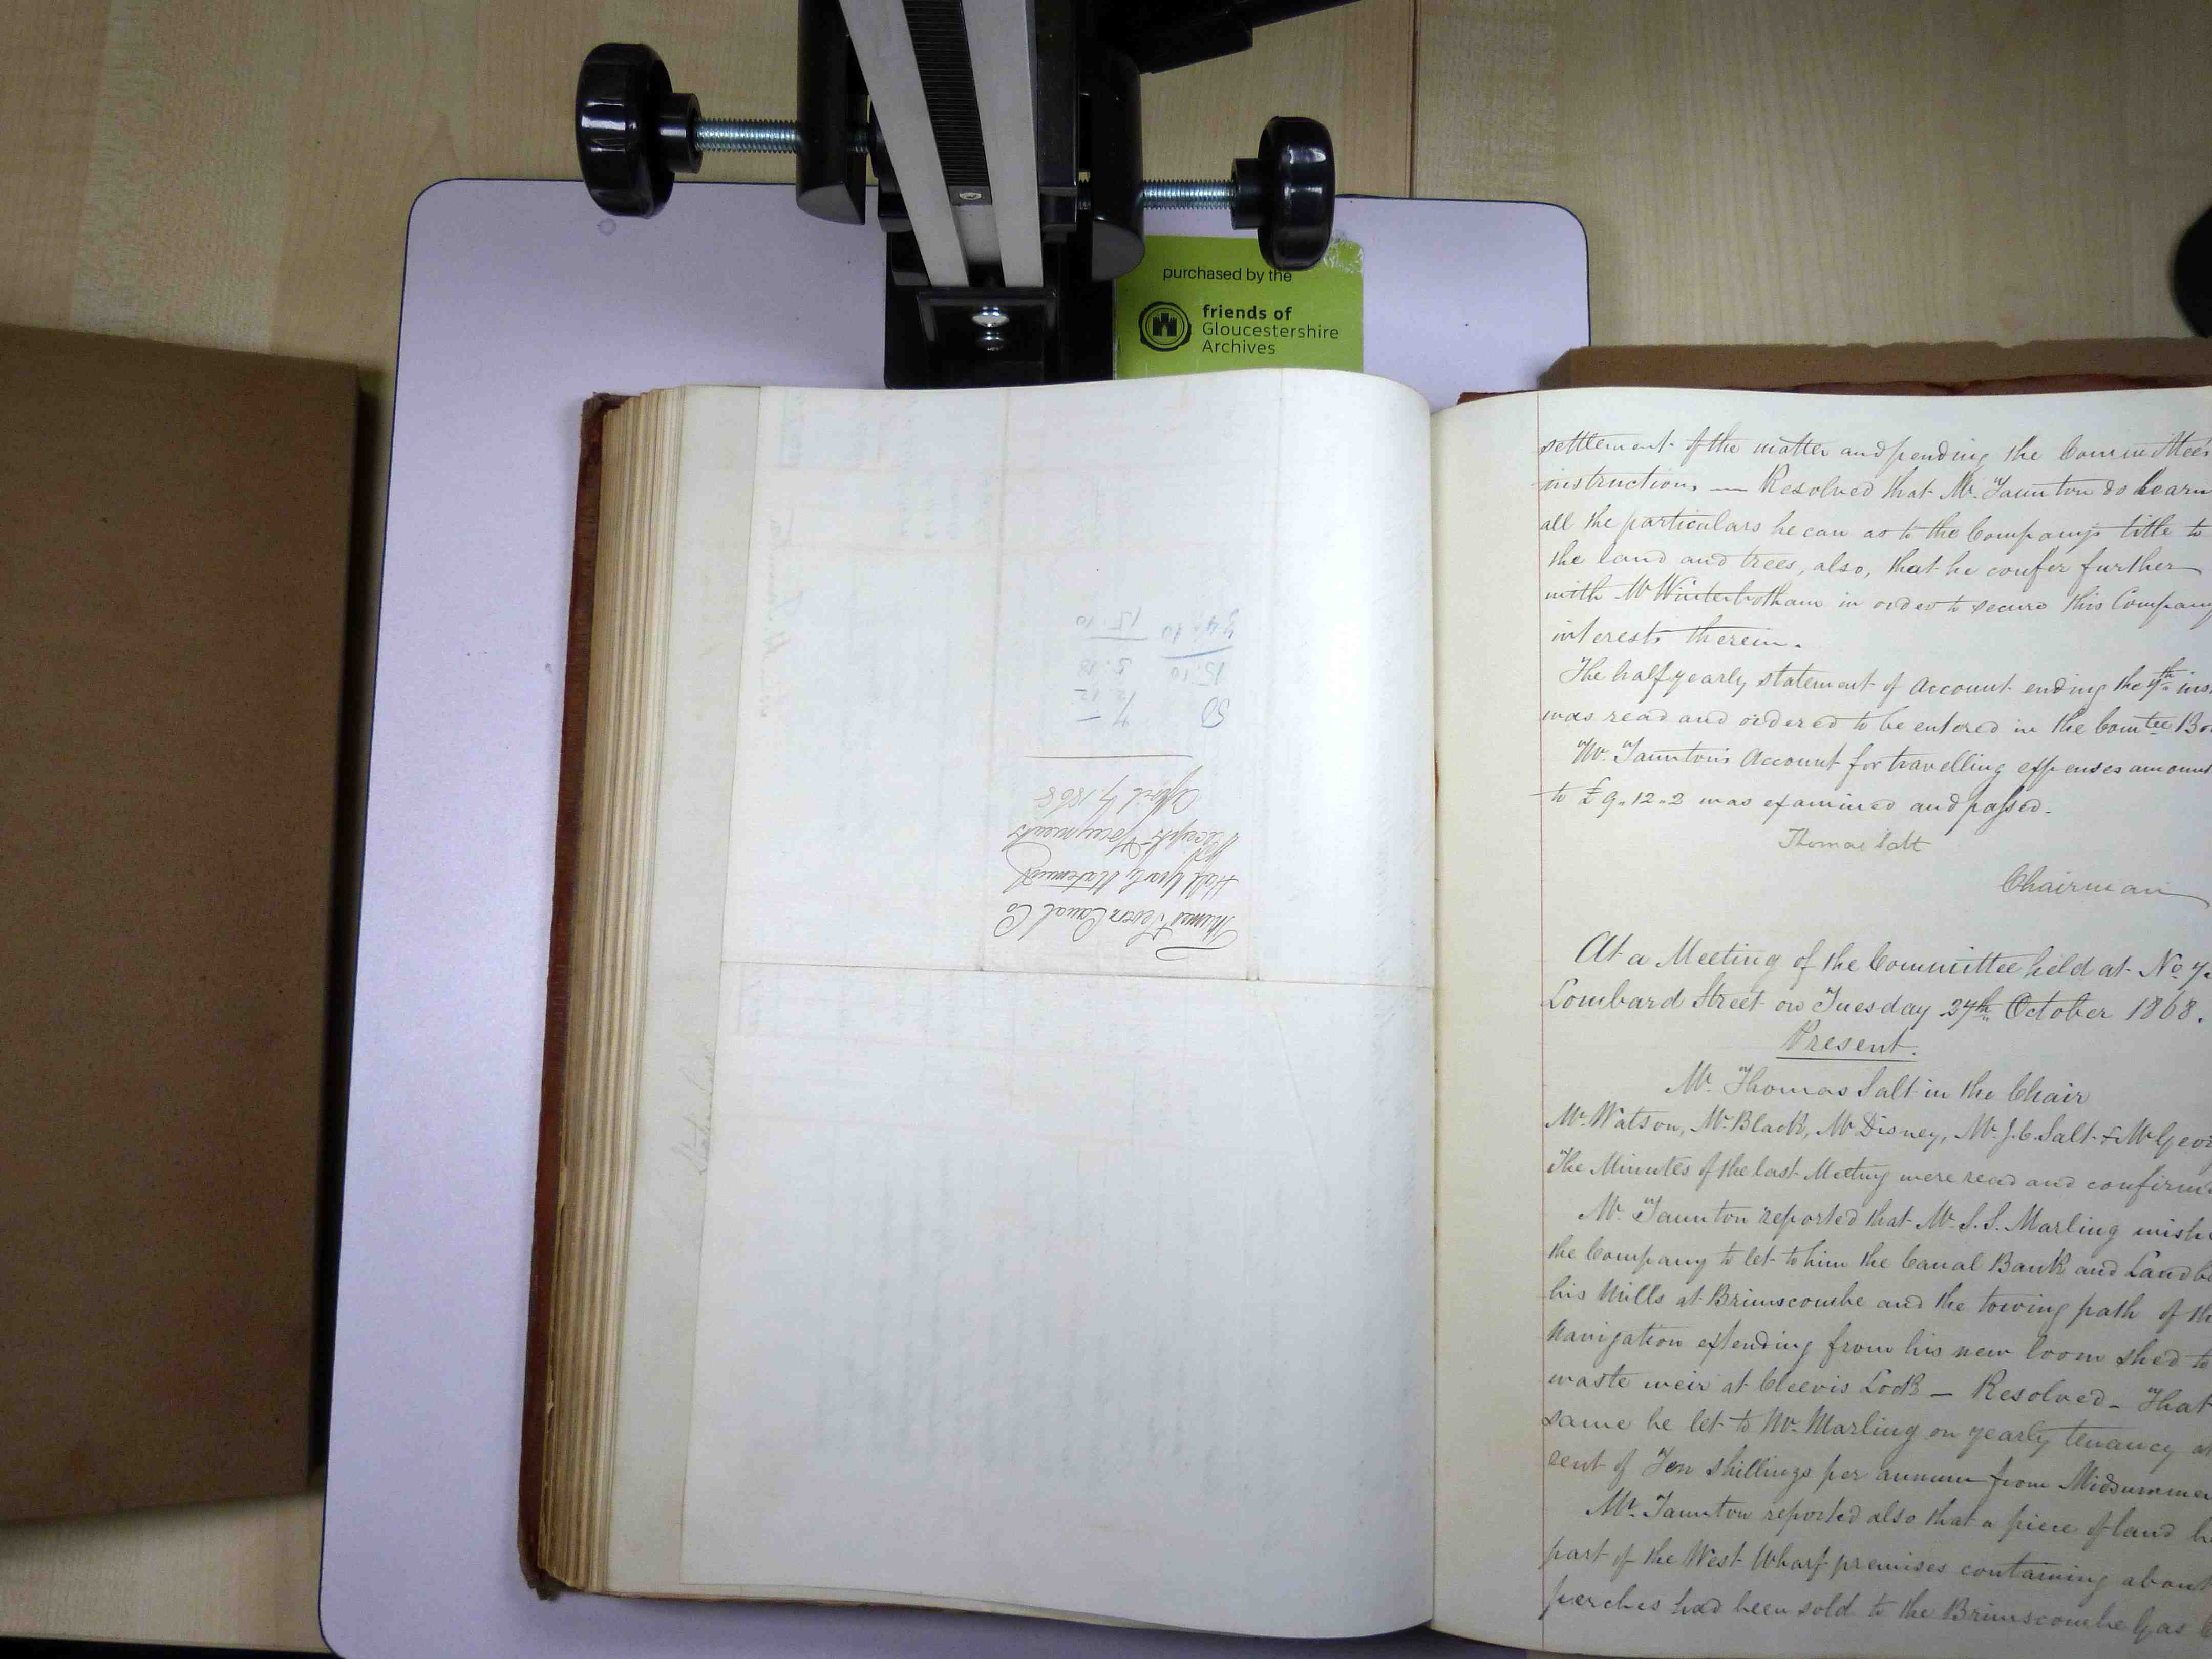 purchased by the
friends of
Gloucestershire
Archives
Thames & Severn Canal Co
Half Yearly Statement
of
Receipts & Payments
April 7, 1868
50
15.10
34.10
7 –
2.12
5.18
15.10
settlement of the matter and pending the Committee's
instructions — Resolved that Mr. Taunton do learn
all the particulars he can as to the Company's title to
the land and trees, also, that he confer further
with Mr Winterbotham in order to secure this Company
interests therein.
The half yearly statement of Account ending the 7th ins
was read and ordered to be entered in the Comtee Bo
Mr. Taunton's Account for travelling expenses amount
to £9.12.2 was examined and passed.
Thomas Salt
Chairman
At a Meeting of the Committee held at No 7
Lombard Street on Tuesday 27th October 1868.
Present.
Mr. Thomas Salt in the Chair
Mr. Watson, Mr. Black, Mr Disney, Mr. J. C. Salt & Mr Geor
The Minutes of the last Meeting were read and confirmed
Mr. Taunton reported that Mr. S. S. Marling wishe
the Company to let to him the Canal Bank and Land be
his Mills at Brimscombe and the towing path of the
Navigation extending from his new loom shed to
waste weir at Cleevis Lock — Resolved — That
same be let to Mr. Marling on yearly tenancy at
rent of Ten shillings per annum from Midsummer
Mr. Taunton reported also that a piece of land be
part of the West Wharf premises containing about
perches had been sold to the Brimscombe Gas C